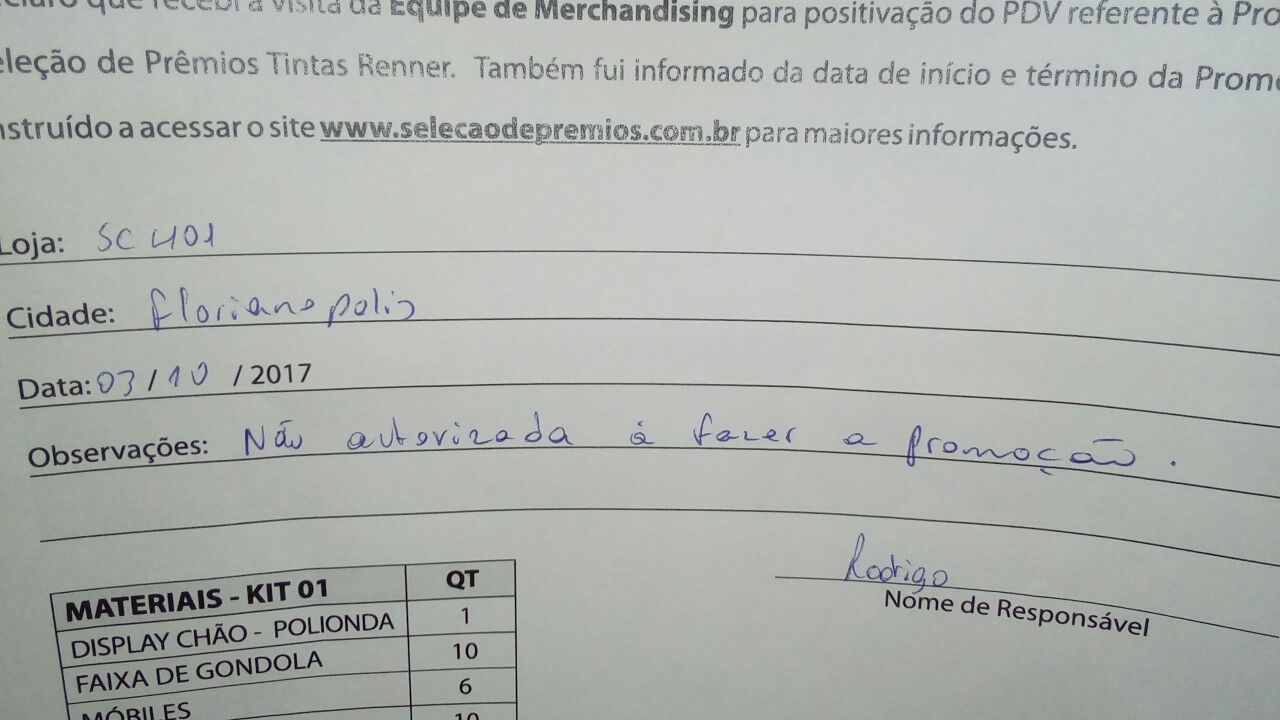 que recebi a visita da Equipe de Merchandising para positivação do PDV referente à
de Prêmios Tintas Renner. Também fui informado da data de início e término da
a acessar o site www.selecaodepremios.com.br para maiores informações.
Loja: SC 401
Cidade: Florianopolis
Data: 03 / 10 / 2017
Observações: Não autorizada à fazer a promoção.
Rodrigo
Nome de Responsável
MATERIAIS - KIT 01 QT
DISPLAY CHÃO - POLIONDA 1
FAIXA DE GONDOLA 10
MÓBILES 6
10